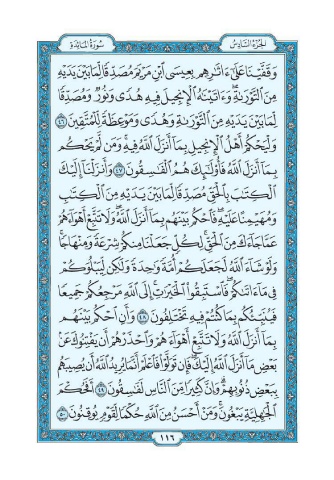 سُورَةُ المَائِدَةِ الجُزْءُ السَّادِسُ
وَقَفَّيْنَا عَلَىٰٓ ءَاثَٰرِهِم بِعِيسَى ٱبْنِ مَرْيَمَ مُصَدِّقًا لِّمَا بَيْنَ يَدَيْهِ
مِنَ ٱلتَّوْرَىٰةِ ۖ وَءَاتَيْنَٰهُ ٱلْإِنجِيلَ فِيهِ هُدًى وَنُورٌ وَمُصَدِّقًا
لِّمَا بَيْنَ يَدَيْهِ مِنَ ٱلتَّوْرَىٰةِ وَهُدًى وَمَوْعِظَةً لِّلْمُتَّقِينَ ٤٦
وَلْيَحْكُمْ أَهْلُ ٱلْإِنجِيلِ بِمَآ أَنزَلَ ٱللَّهُ فِيهِ ۚ وَمَن لَّمْ يَحْكُم
بِمَآ أَنزَلَ ٱللَّهُ فَأُو۟لَٰٓئِكَ هُمُ ٱلْفَٰسِقُونَ ٤٧ وَأَنزَلْنَآ إِلَيْكَ
ٱلْكِتَٰبَ بِٱلْحَقِّ مُصَدِّقًا لِّمَا بَيْنَ يَدَيْهِ مِنَ ٱلْكِتَٰبِ
وَمُهَيْمِنًا عَلَيْهِ ۖ فَٱحْكُم بَيْنَهُم بِمَآ أَنزَلَ ٱللَّهُ ۖ وَلَا تَتَّبِعْ أَهْوَآءَهُمْ
عَمَّا جَآءَكَ مِنَ ٱلْحَقِّ ۚ لِكُلٍّ جَعَلْنَا مِنكُمْ شِرْعَةً وَمِنْهَاجًا ۚ
وَلَوْ شَآءَ ٱللَّهُ لَجَعَلَكُمْ أُمَّةً وَٰحِدَةً وَلَٰكِن لِّيَبْلُوَكُمْ
فِى مَآ ءَاتَىٰكُمْ ۖ فَٱسْتَبِقُوا۟ ٱلْخَيْرَٰتِ ۚ إِلَى ٱللَّهِ مَرْجِعُكُمْ جَمِيعًا
فَيُنَبِّئُكُم بِمَا كُنتُمْ فِيهِ تَخْتَلِفُونَ ٤٨ وَأَنِ ٱحْكُم بَيْنَهُم
بِمَآ أَنزَلَ ٱللَّهُ وَلَا تَتَّبِعْ أَهْوَآءَهُمْ وَٱحْذَرْهُمْ أَن يَفْتِنُوكَ عَنۢ
بَعْضِ مَآ أَنزَلَ ٱللَّهُ إِلَيْكَ ۖ فَإِن تَوَلَّوْا۟ فَٱعْلَمْ أَنَّمَا يُرِيدُ ٱللَّهُ أَن يُصِيبَهُم
بِبَعْضِ ذُنُوبِهِمْ ۗ وَإِنَّ كَثِيرًا مِّنَ ٱلنَّاسِ لَفَٰسِقُونَ ٤٩ أَفَحُكْمَ
ٱلْجَٰهِلِيَّةِ يَبْغُونَ ۚ وَمَنْ أَحْسَنُ مِنَ ٱللَّهِ حُكْمًا لِّقَوْمٍ يُوقِنُونَ ٥٠
١١٦